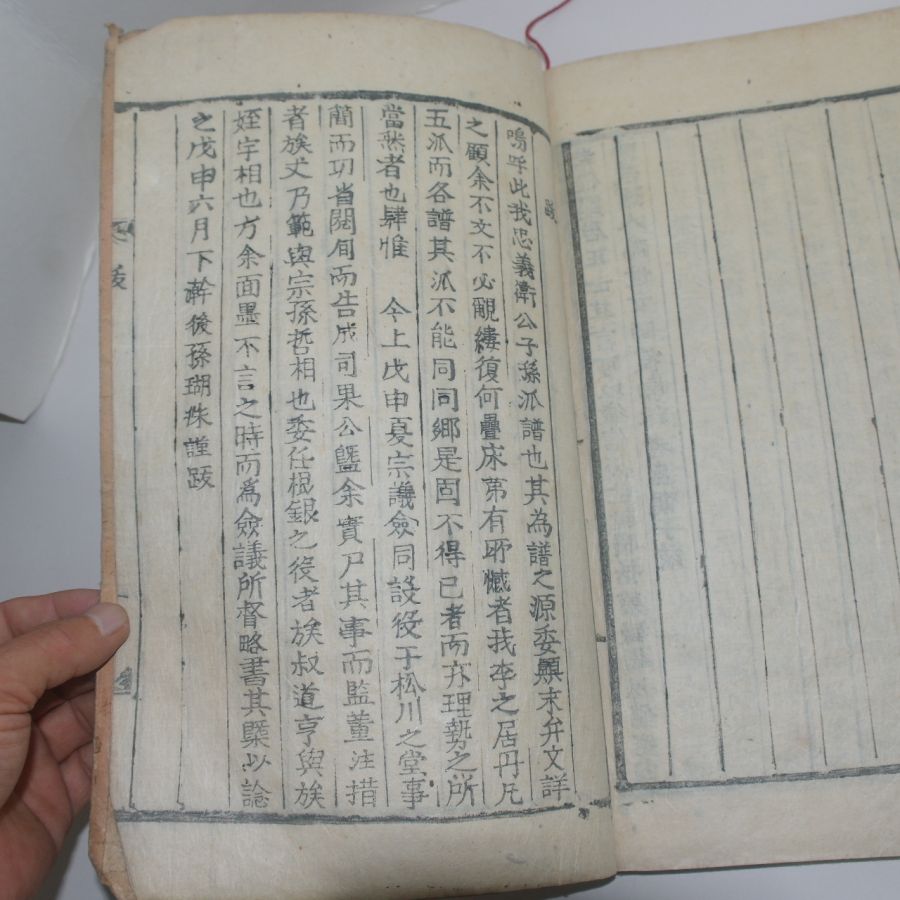 跋
嗚呼此我忠義衛公子孫派譜也其為譜之源委顚末弁文詳
之顧余不文不必覼縷復何疊床第有所憾者我李之居丹凡
五派而各譜其派不能同同鄉是固不得已者而亦理勢之所
當然者也肆惟 今上戊申夏宗議僉同設役于松川之堂事
蕳而功省閱旬而告成司果公曁余實尸其事而監董注措
者族丈乃範與宗孫哲相也委任梞銀之役者族叔道亨與族
姪宇相也方余面墨不言之時而爲僉議所督略書其槩以諗
之戊申六月下澣後孫瑚珠謹跋
跋